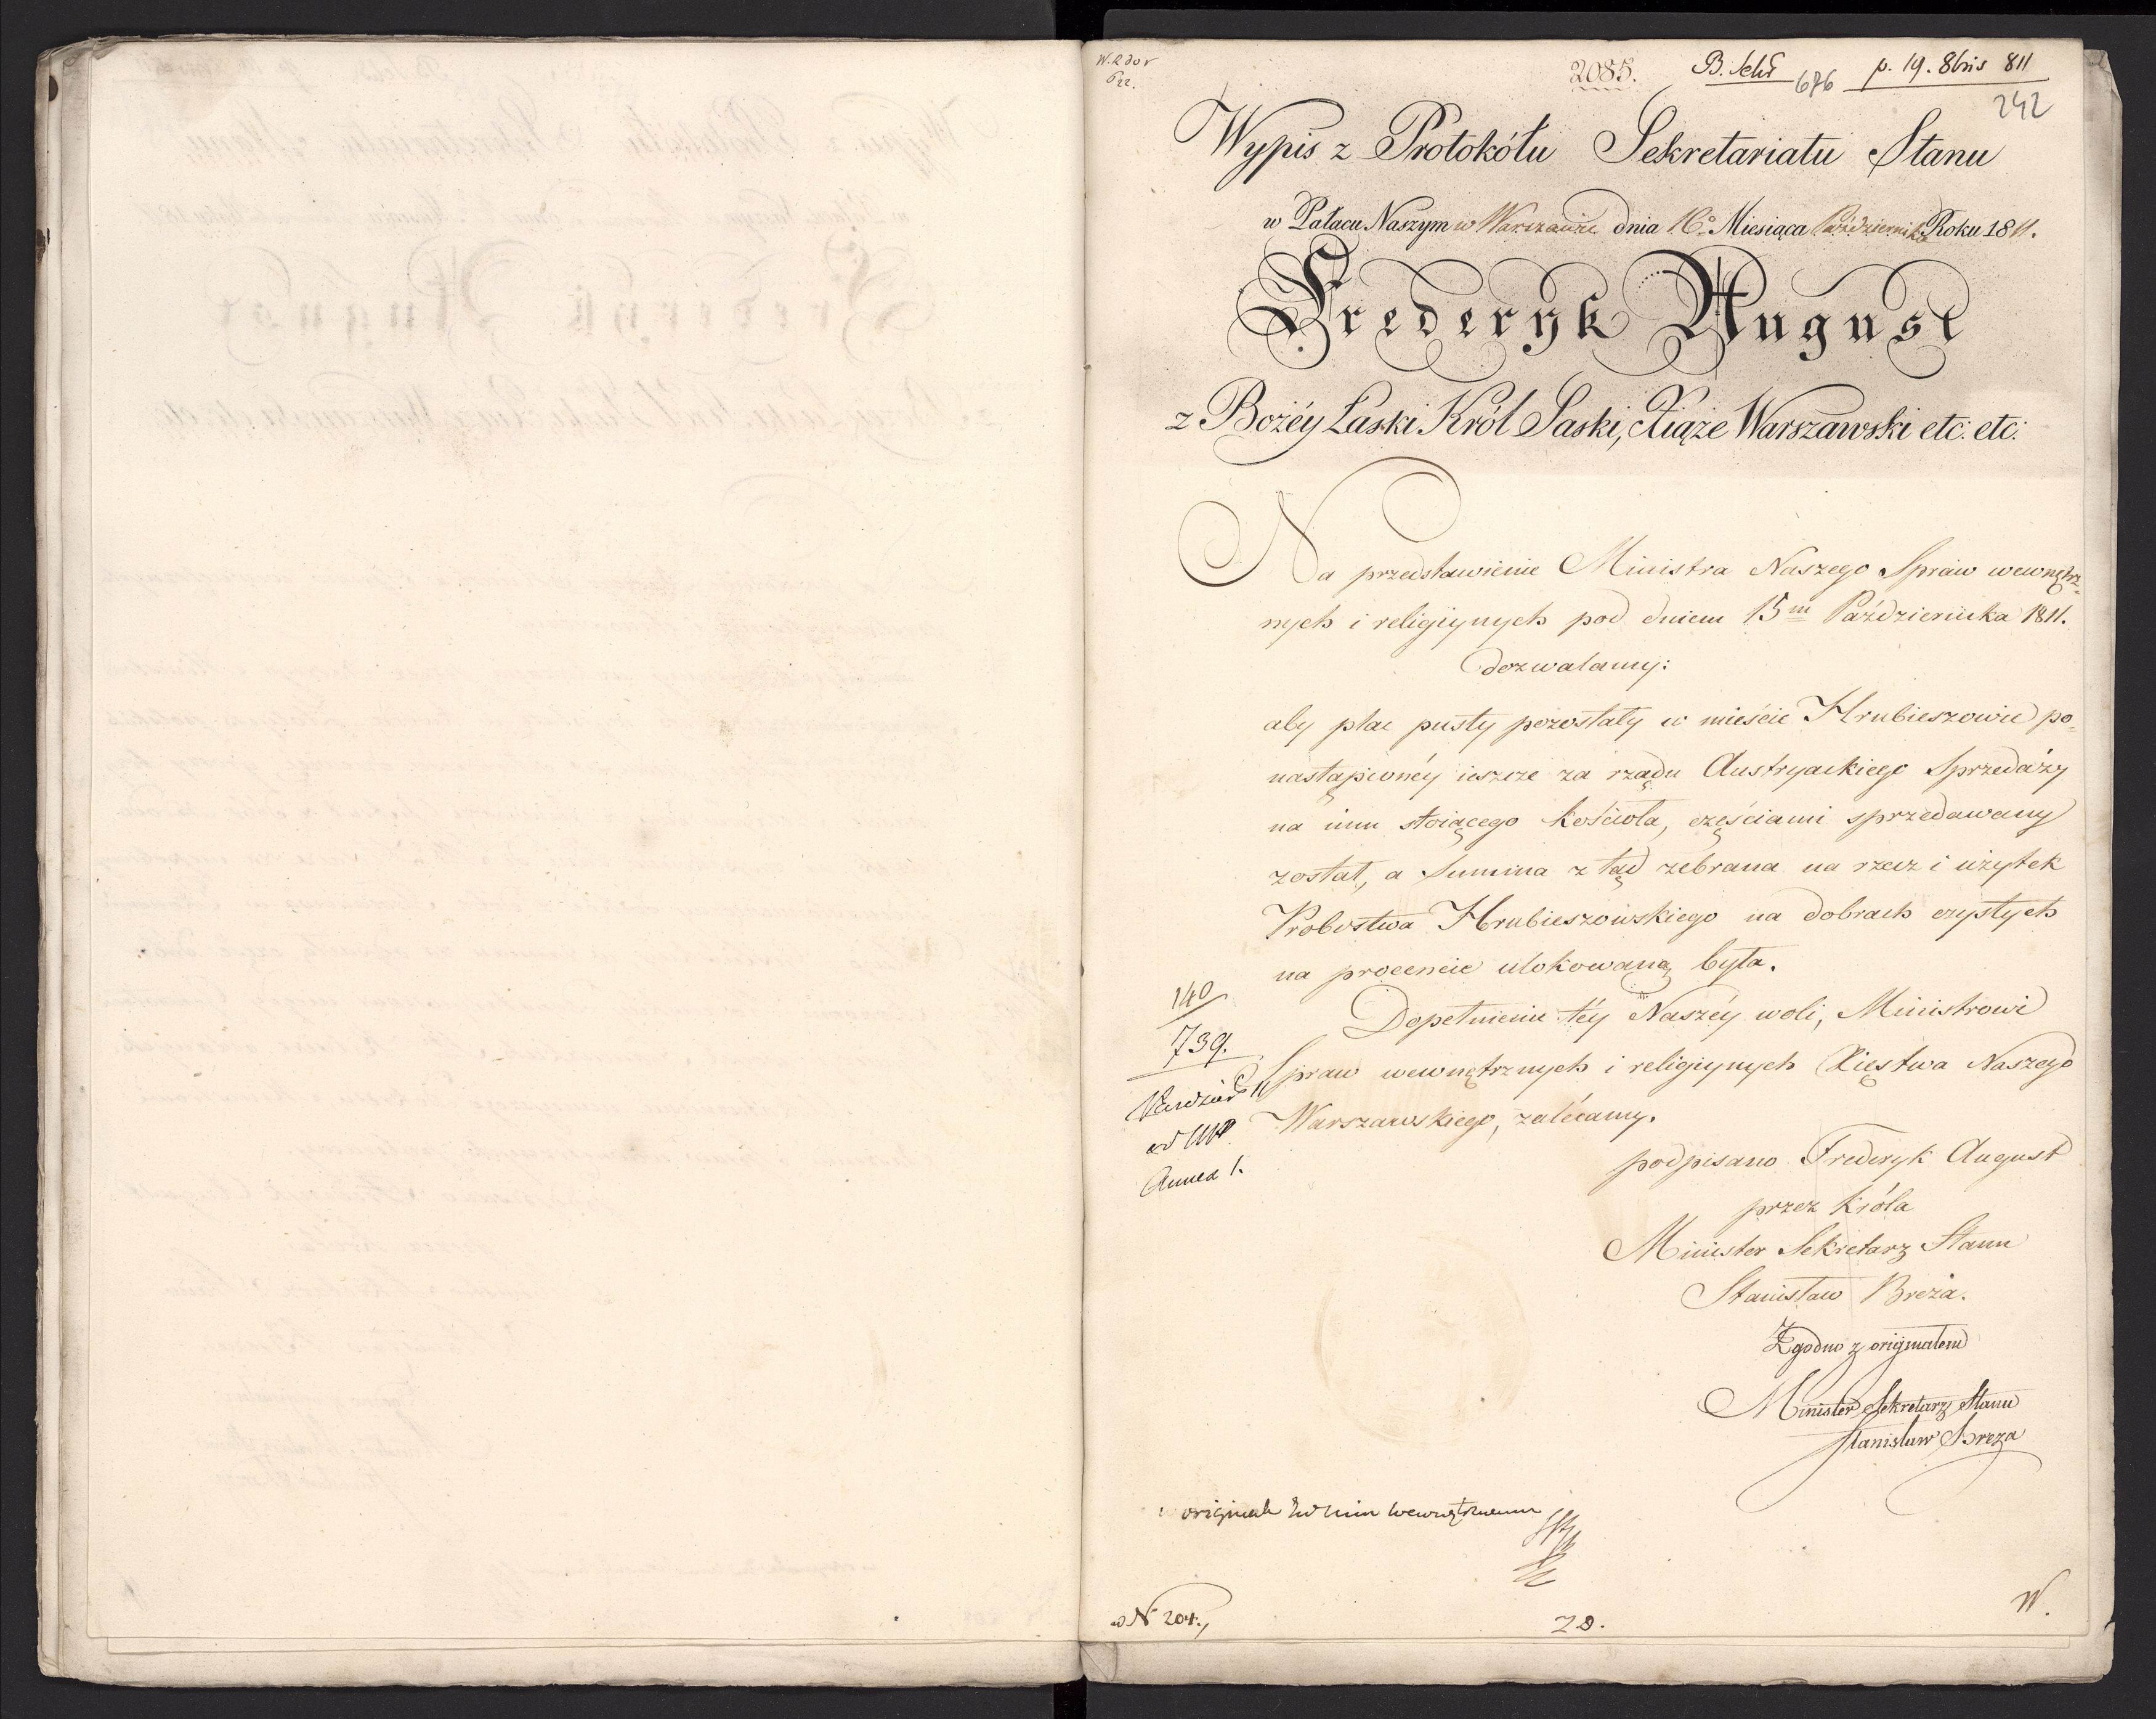 2085. 676 p. 19. 8bris 811
242
Wypis z Protokółu Sekretariatu Stanu
w Pałacu Naszym w Warszawie dnia 16° Miesiąca Października Roku 1811.
Frederyk August
z Bożéy Łaski Król Saski, Xiąże Warszawski etc. etc.
Na przedstawienie Ministra Naszego Spraw wewnętrz-
nych i religiynych pod dniem 15m Października 1811.
dozwalamy:
aby plac pusty pozostały w mieście Hrubieszowie po-
nastąpionéy ieszcze za rządu Austryackiego Sprzedaży
na nim stoiącego kościoła, częściami sprzedawany
został, a Summa ztąd zebrana na rzecz i użytek
Probostwa Hrubieszowskiego na dobrach czystych
na procencie ulokowaną była.
Dopełnienie téy Naszéy woli, Ministrowi
Spraw wewnętrznych i religiynych Xięstwa Naszego
Warszawskiego, zalecamy.
140
739.
Annex 1.
podpisano Frederyk August
przez Króla
Minister Sekretarz Stanu
Stanisław Breza.
Zgodno z originałem
Minister Sekretarz Stanu
Stanisław Breza
w N 204.
28.
W.